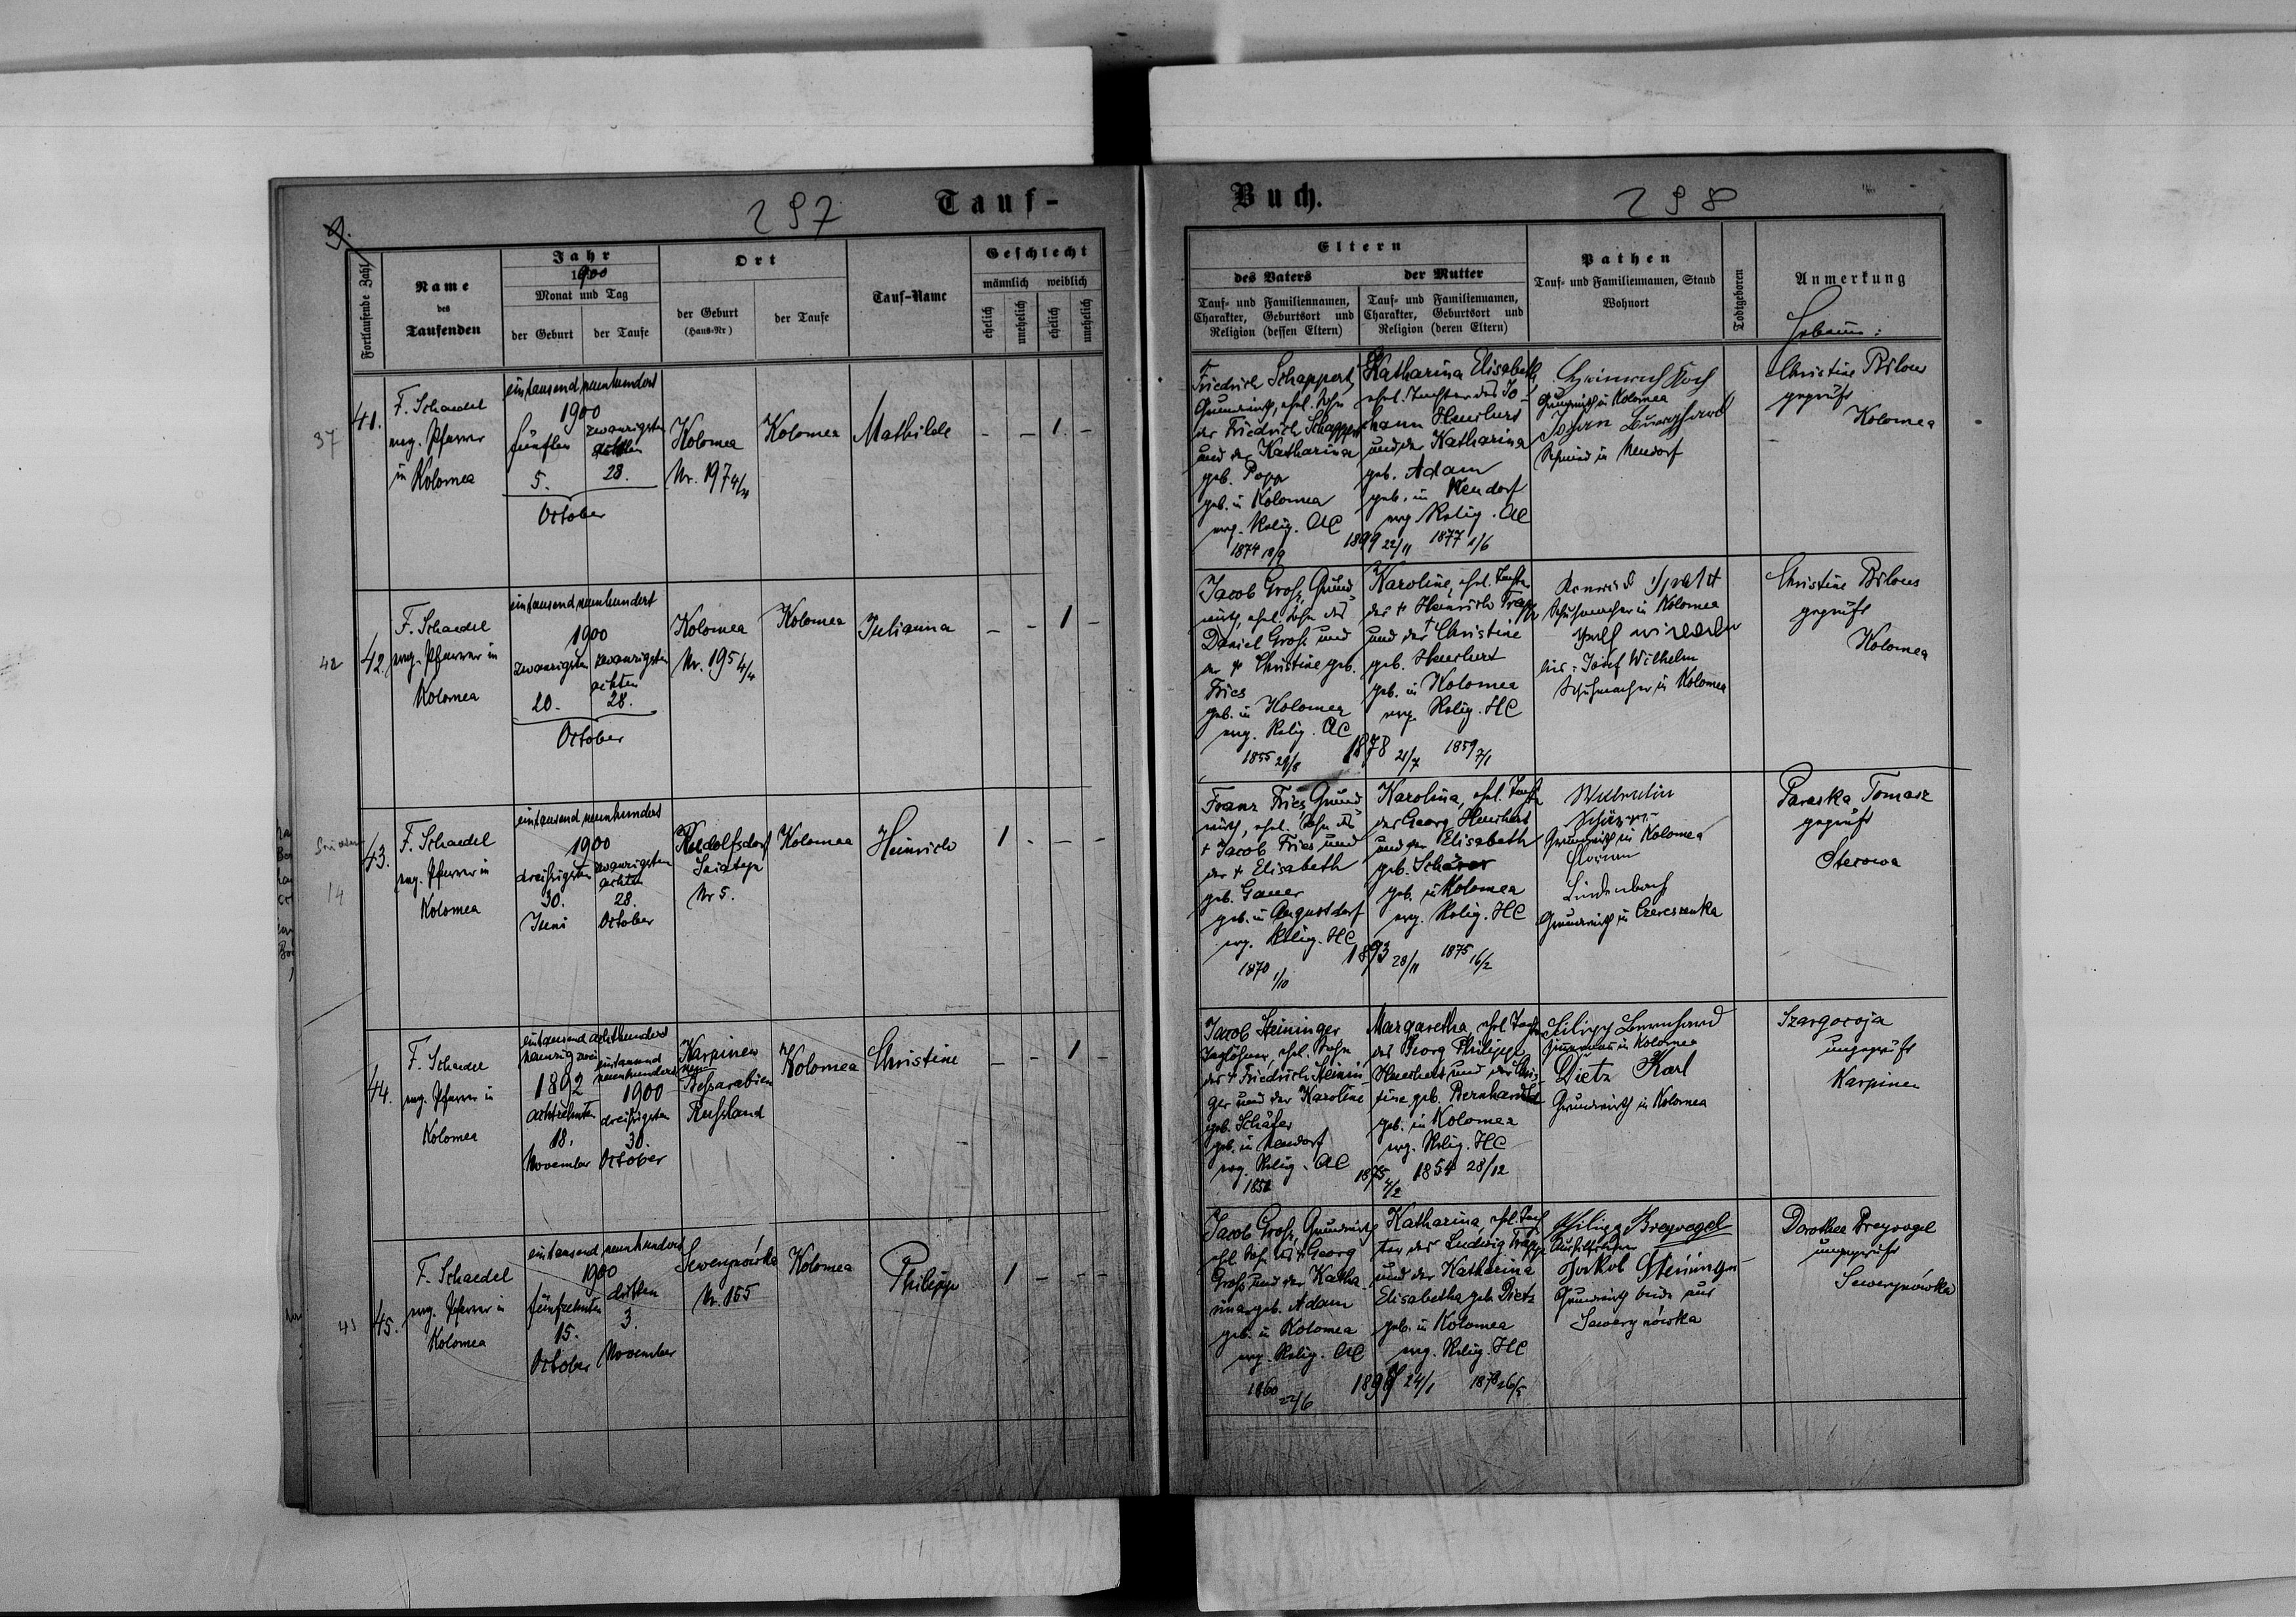 297
Tauf-
9.
Fortlaufende Zahl
Name
des
Taufenden
Jahr
1900
Monat und Tag
der Geburt
der Taufe
Ort
der Geburt
(Haus-Nr)
der Taufe
Tauf-Name
Geschlecht
männlich weiblich
ehelich
unehelich
ehelich
unehelich
37
41.
F. Schaedel
evg. Pfarrer
in Kolomea
eintausend neunhundert
1900
fünften
5.
zwanzigsten
achten
28.
October
Kolomea
Nr. 197 4/4
Kolomea
Mathilde
- - 1. -
42
42.
F. Schaedel
evg. Pfarrer in
Kolomea
eintausend neunhundert
1900
zwanzigsten
20.
zwanzigsten
achten
28.
October
Kolomea
Nr. 195 4/4
Kolomea
Julianna
- - 1 -
14
43.
F. Schaedel
evg. Pfarrer in
Kolomea
eintausend neunhundert
1900
dreißigsten
30.
Juni
zwanzigsten
achten
28.
October
Rudolfsdorf
Nr 5.
Kolomea
Heinrich
1 - - -
44.
F. Schaedel
evg. Pfarrer in
Kolomea
eintausend achthundert
neunzig zwei
1892
achtzehnten
18.
November
eintausend
neunhundert
1900
dreißigsten
30.
October
Karpinen
Beßarabien
Rußland
Kolomea
Christine
- - 1 -
45.
F. Schaedel
evg. Pfarrer in
Kolomea
eintausend neunhundert
1900
fünfzehnten
15.
October
dritten
3.
November
Sewerynówka
Nr. 155
Kolomea
Philipp
1 - - -
Buch.
298
Eltern
des Vaters
Tauf- und Familiennamen,
Charakter, Geburtsort und
Religion (dessen Eltern)
der Mutter
Tauf- und Familiennamen,
Charakter, Geburtsort und
Religion (deren Eltern)
Pathen
Tauf- und Familiennamen, Stand
Wohnort
Todtgeboren
Anmerkung
Hebamme:
Friedrich Schappert,
Grundwirth, ehel. Sohn
des Friedrich Schappert
und der Katharina
geb. Popp
geb. in Kolomea
evg. Relig. AC
1874 18/9
1899 22/11
Katharina Elisabeth
ehel. Tochter des Jo-
hann Heuchert
und der Katharina
geb. Adam
geb. in Neudorf
evg. Relig. AC
1877 2/6
Heinrich Koch
Grundwirth in Kolomea
Johan Burghard
Schmied in Neudorf
Christine Bilous
geprüft
Kolomea
Jacob Groß, Grund
wirth, ehel. Sohn des
Daniel Groß und
der † Christine geb.
Fries
geb. in Kolomea
evg. Relig. AC
1855 29/8
1878 21/7
Karoline, ehel. Tochter
des † Heinrich Trapp
und der † Christine
geb. Heuchert
geb. in Kolomea
evg. Relig. HC
1859 7/1
Schuhmacher in Kolomea
Josef Wilhelm
Schuhmacher in Kolomea
Christine Bilous
geprüft
Kolomea
Franz Fries, Grund
wirth, ehel. Sohn des
† Jacob Fries und
der † Elisabeth
geb. Gauer
geb. in Augustdorf
evg. Relig. HC
1870 1/10
1893 28/11
Karolina, ehel. Tochter
des Georg Heuchert
und der Elisabeth
geb. Schärer
geb. in Kolomea
evg. Relig. HC
1875 16/2
Wilhelm
Grundwirth in Kolomea
Lindenbach
Grundwirth in Czereszenka
Paraska Tomasz
geprüft
Sterowa
Jacob Steininger
Taglöhner, ehel. Sohn
des † Friedrich Steinin
ger und der Karoline
geb. Schäfer
geb. in Neudorf
evg. Relig. AC
1852
1875 7/2
Margaretha, ehel. Tochter
des Georg Philipp
Heuchert und der Chris-
tine geb. Bernhardt
geb. in Kolomea
evg. Relig. HC
1854 28/12
Filipp Bernhard
Zimmermann in Kolomea
Dietz Karl
Grundwirth in Kolomea
ungeprüft
Karpinen
Jacob Groß, Grundwirth
ehel. Sohn des † Georg
Groß und der Katha
rina geb. Adam
geb. in Kolomea
evg. Relig. AC
1860 22/6
24/1
Katharina, ehel. Toch
ter des Ludwig Trapp
und der Katharina
Elisabetha geb. Dietz
geb. in Kolomea
evg. Relig. HC
1878 26/5
Philipp Breyvogel
Jakob Steininger
Grundwirth beide aus
Sewerynówka
Dorothea Breyvogel
ungeprüft
Sewerynówka